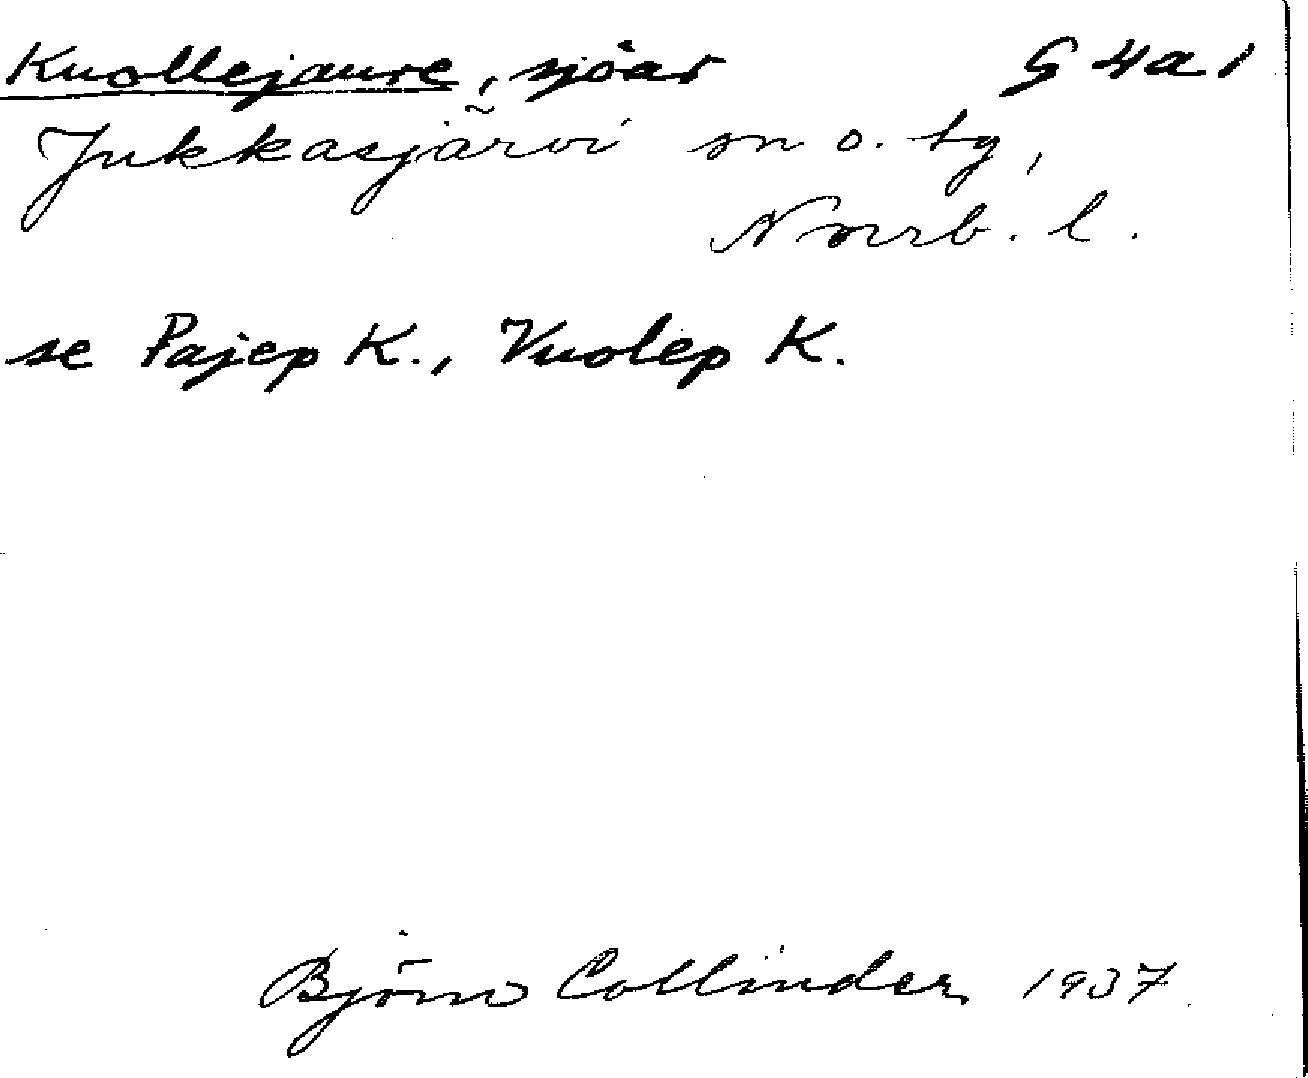 Kuollejaure, sjöar G 4 a 1
Jukkasjärvi sn o. tg,
Norrb. l.
se Pajep K., Vuolep K.
Björn Collinder 1937